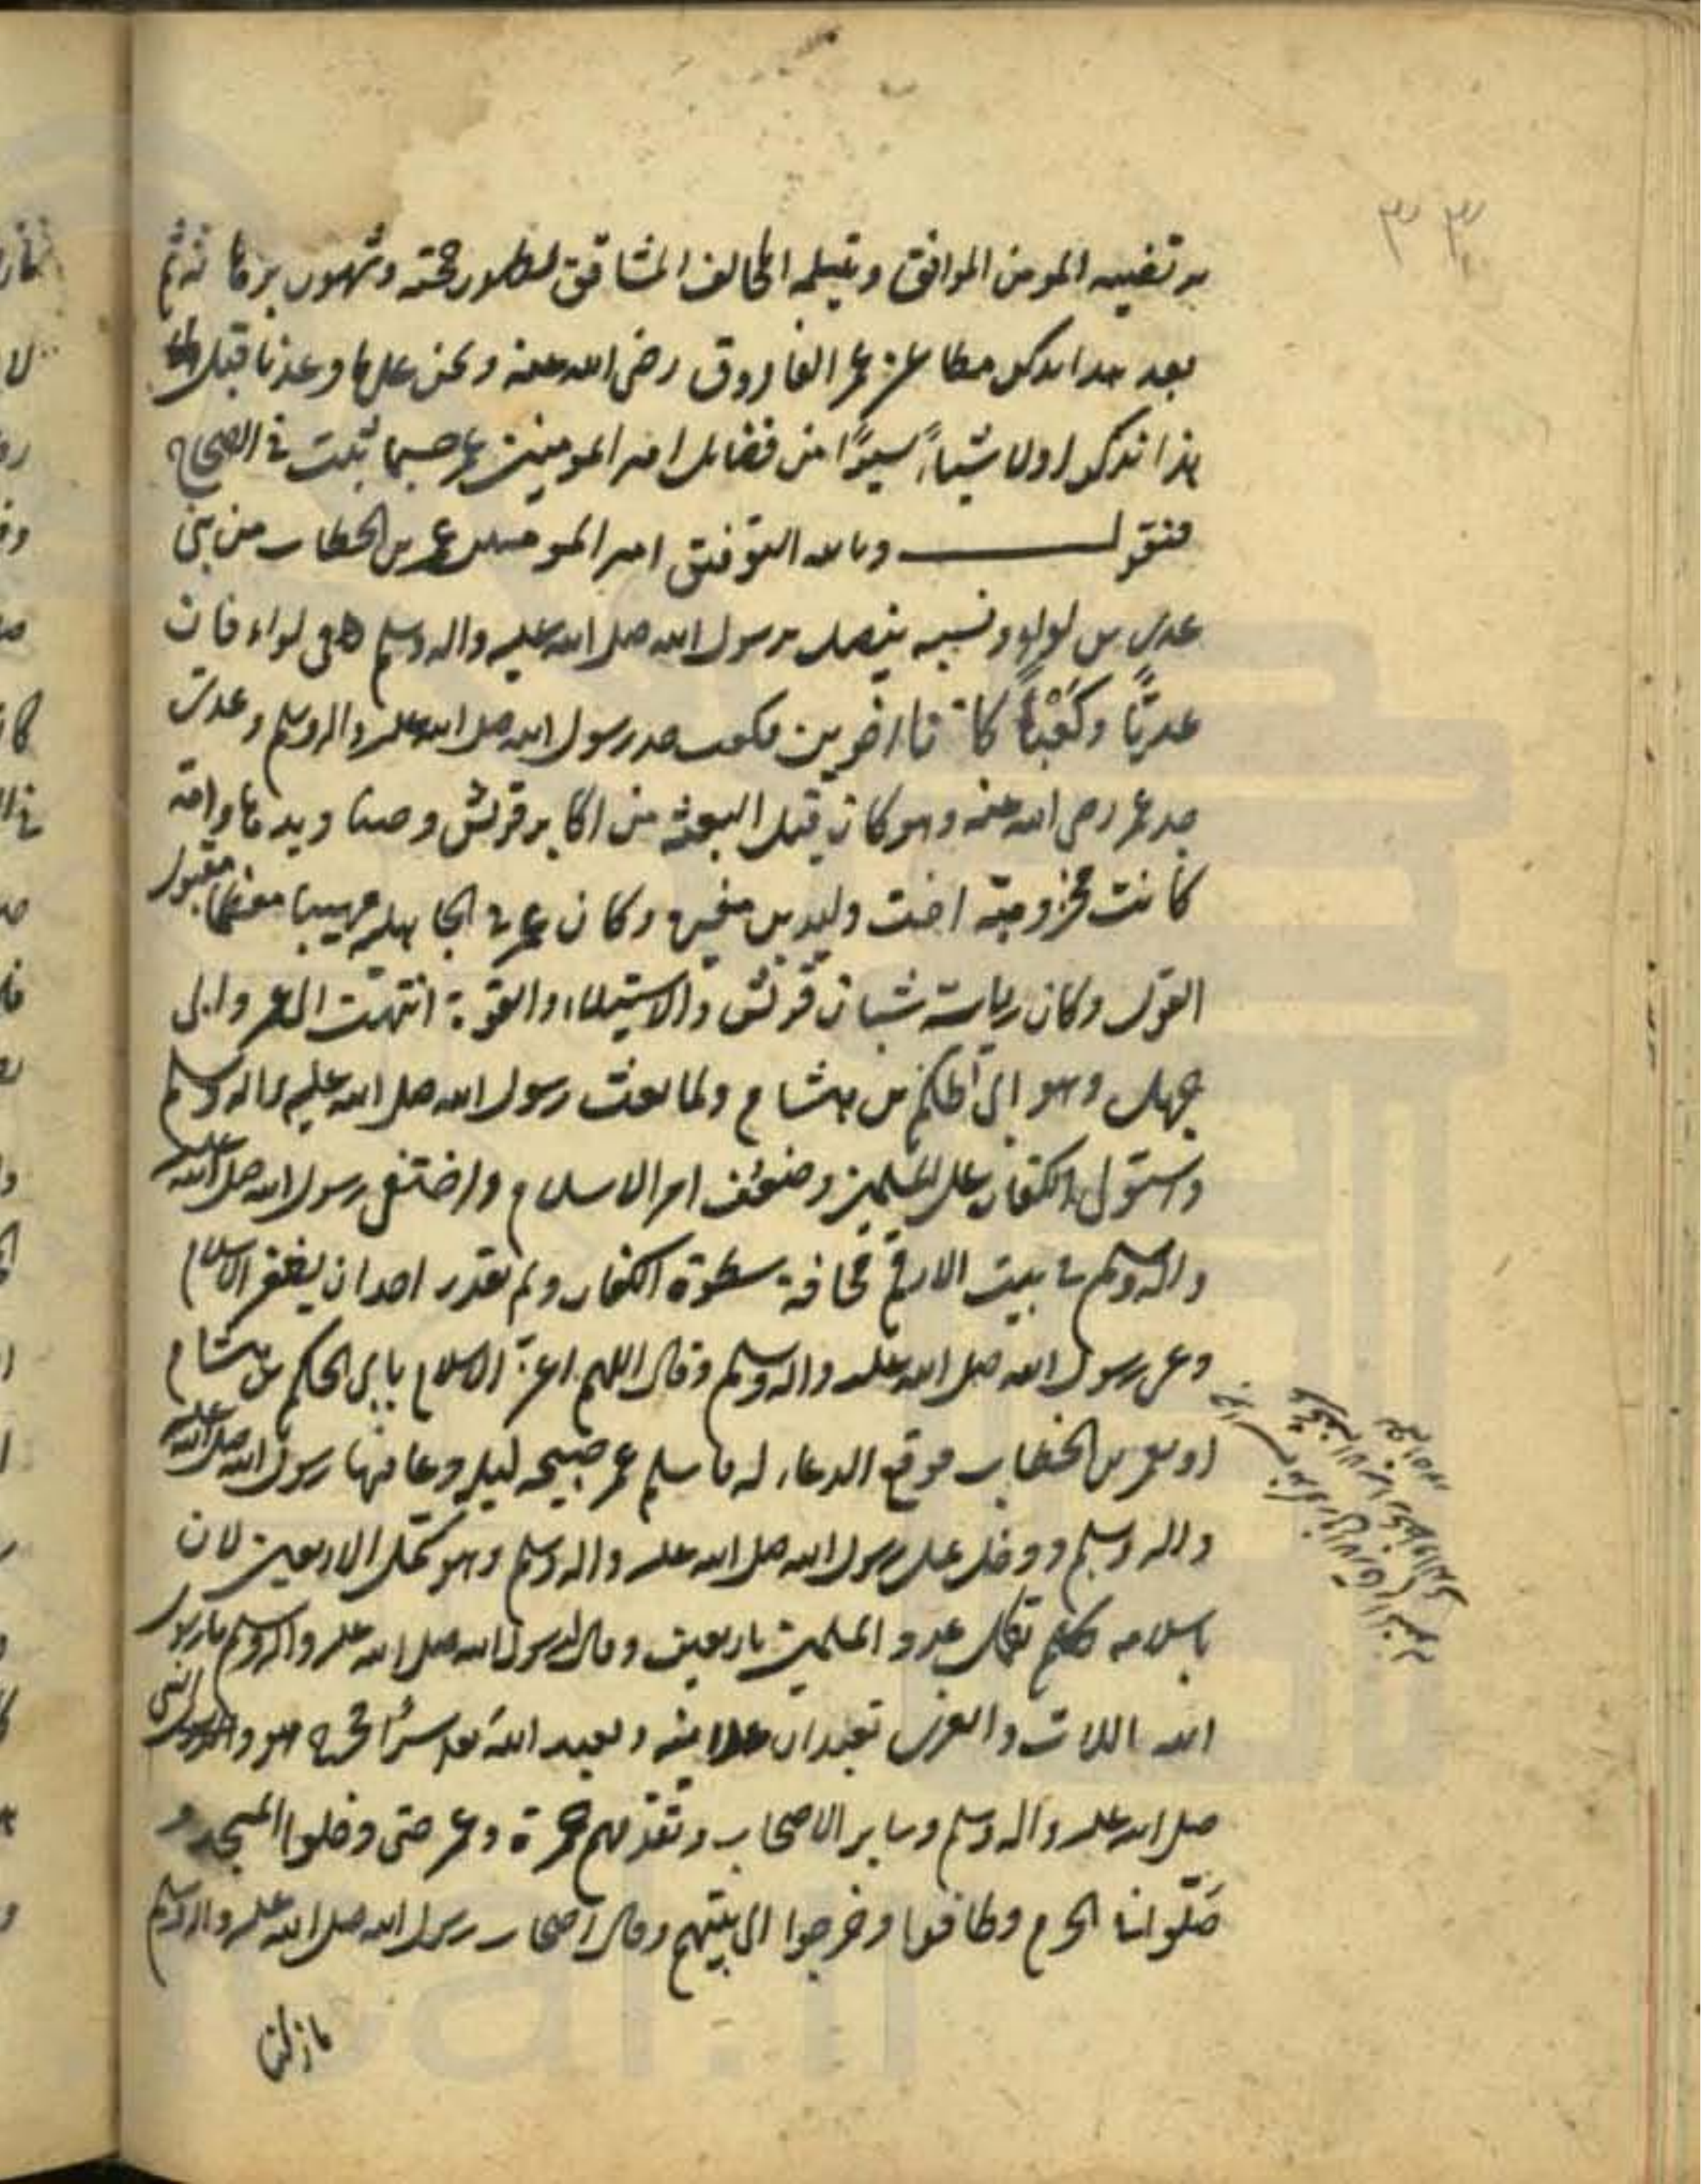 يرتضيه المومن الموافق ويسلمه المخالف المشاقق لظهور حجته وشهور برهانه ثم
بعد هذا يذكر مطاعن عمر الفاروق رضى الله عنه ونحن على ما وعدنا قبل هذا
هذا نذكر اولا شيئا يسيرًا من فضايل امير المومنين عمر حسبما ثبت فى الصحاح
فنقول وبالله التوفيق امير المومنين عمر بن الخطاب من بنى
عدى بن لواء ونسبه يتصل برسول الله صلى الله عليه واله وسلم فى لواء فان
عديّا وكَعْبًا كانا اخوين فكعب جد رسول الله صلى الله عليه واله وسلم وعدى
جد عمر رضى الله عنه وهو كان قبل البعثة من اكابر قريش وصناديدها وامه
كانت مخزومية اخت وليد بن مغيرة وكان عمر فى الجاهلية مهيبا معظما مقبول
القول وكان رياسة شبان قريش والاستيلاء والقوة انتهت الى عمر وابى
جهل وهو ابى الحكم بن هشام ولما بعث رسول الله صلى الله عليه واله وسلم
واستولى الكفار على المسلمين وضعُف امر الاسلام واختفى رسول الله صلى الله عليه
واله وسلم فى بيت الارقم مخافة سطوة الكفار ولم يقدر احد ان يظهر الاسلام
دعى رسول الله صلى الله عليه واله وسلم وقال اللهم اعز الاسلام بابى الحكم بن هشام
او بعمر بن الخطاب فوقع الدعاء له فاسلم عمر صبيحه ليلة دعا فيها رسول الله صلى الله عليه
واله وسلم ودخل على رسول الله صلى الله عليه واله وسلم وهو مكمل الاربعين لان
باسلامه تكامل عدد المسلمين باربعين وقال لرسول الله صلى الله عليه واله وسلم يا رسول
الله اللات والعزى تعبدان علانية ويعبد الله سرّا فخرج هو والنبى
صلى الله عليه واله وسلم وساير الاصحاب وتقدمهم حمزة وعمر حتى دخلوا المسجد و
صَلّوا الحرم وطافوا وخرجوا الى بيتهم وقال اصحاب رسول الله صلى الله عليه واله وسلم
ما زلنا
٣٣